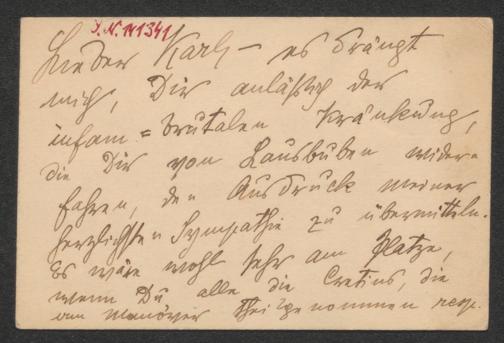 I. N. 141341
Lieber Karl – es drängt
mich, Dir anläßlich der
infam = brutalen Kränkung,
die Dir von Lausbuben wider-
fahren, den Ausdruck meiner
herzlichsten Sympathie zu übermitteln.
Es wäre wohl sehr am Platze,
wenn Du alle die Cretins, die
am Manöver theilgenommen resp.